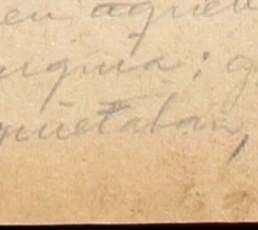 en aquell
igma; g
quietaban,